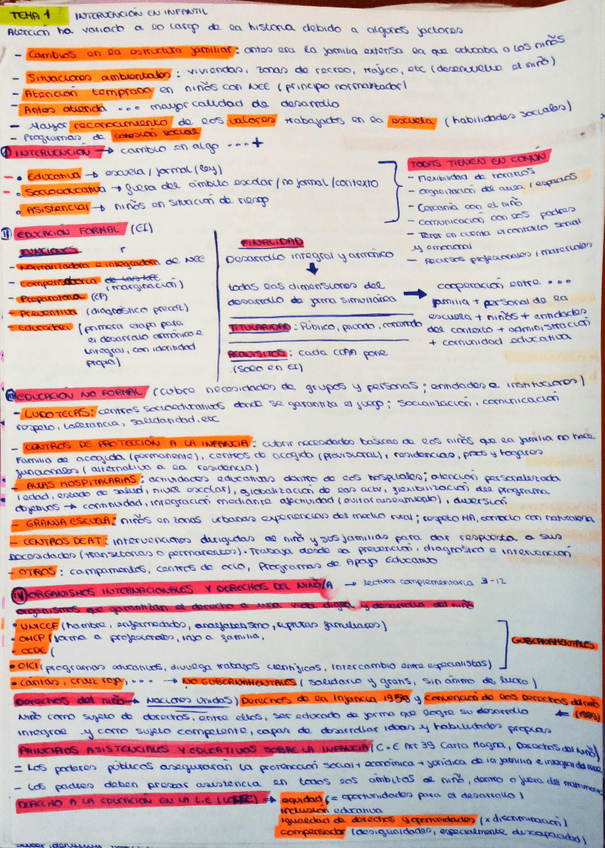 TEMA 1 INTERVENCIÓN EN INFANTIL
Atención ha variado a lo largo de la historia debido a algunos factores
- Cambios en la estructura familiar: antes era la familia extensa la que educaba a los niños
- Situaciones ambientales: viviendas, zonas de recreo, tráfico, etc (desenvuelve el niño)
- Atención temprana en niños con NEE (principio normalizador)
- Antes atienda ... mayor calidad de desarrollo
- Mayor reconocimiento de los valores trabajados en la escuela (habilidades sociales)
- Programas de cohesión social
I INTERVENCIÓN → cambio en algo ... +
• Educativa → escuela / formal (ley)
• Socioeducativa → fuera del ámbito escolar / no formal / contexto
• Asistencial → niños en situación de riesgo
TODAS TIENEN EN COMÚN
- Flexibilidad de horarios
- organización del aula / espacios
- Cercanía con el niño
- comunicación con los padres
- Tener en cuenta el contexto social y emocional
- Recursos profesionales / materiales
II EDUCACIÓN FORMAL (EI)
FUNCIONES
- Normalizadora e integradora de NEE
- Compensadora (marginación)
- Preparatoria (EP)
- Preventiva (diagnóstico precoz)
- Educadora (primera etapa para
el desarrollo armónico e
integral, con identidad
propia)
FINALIDAD
Desarrollo integral y armónico
↓
todas las dimensiones del
desarrollo de forma simultánea
→ cooperación entre ...
familia + personal de la
escuela + niños + entidades
del contexto + administración
+ comunidad educativa
TITULARIDAD: Público, privado, concertado
REQUISITOS: cada CCAA pone
(solo en EI)
III EDUCACIÓN NO FORMAL (cubre necesidades de grupos y personas; entidades e instituciones)
- LUDOTECAS: centros socioeducativos donde se garantiza el juego; socialización, comunicación
respeto, tolerancia, solidaridad, etc
- CENTROS DE PROTECCIÓN A LA INFANCIA: cubrir necesidades básicas de los niños que la familia no hace
Familia de acogida (permanente), centros de acogida (provisional), residencias, pisos y hogares
funcionales (alternativa a la residencia)
- AULAS HOSPITALARIAS: actividades educativas dentro de los hospitales; atención personalizada
(edad, estado de salud, nivel escolar), globalización de las actv, flexibilización del programa
objetivos → continuidad, integración mediante afectividad (evitar aislamiento), diversión
- GRANJA ESCUELA: niños en zonas urbanas experiencias del medio rural; respeto MA, contacto con naturaleza
- CENTROS DE AT: intervenciones dirigidas al niño y sus familias para dar respuesta a sus
necesidades (transitorias o permanentes). Trabaja desde la prevención, diagnóstico e intervención
- OTROS: campamentos, centros de ocio, Programas de Apoyo Educativo
IV ORGANISMOS INTERNACIONALES Y DERECHOS DEL NIÑO/A → lectura complementaria 3-12
organismos que garantizan el derecho a una vida digna y desarrollo del niño
• UNICEF (hambre, enfermedades, analfabetismo, rupturas familiares)
• OMEP (forma a profesionales, info a familia,
• OCDE (
• OICI (programas educativos, divulga trabajos científicos, intercambio entre especialistas)
GUBERNAMENTALES
• Cáritas, Cruz roja, ... → NO GUBERNAMENTALES (solidario y gratis, sin ánimo de lucro)
Derechos del niño → Naciones Unidas) Derechos de la Infancia 1959 y Convención de los Derechos del niño
(1989)
Niño como sujeto de derechos, entre ellos, ser educado de forma que logre su desarrollo
integral y como sujeto competente, capaz de desarrollar ideas y habilidades propias
PRINCIPIOS ASISTENCIALES Y EDUCATIVOS SOBRE LA INFANCIA (C.E Art 39 Carta Magna, Derechos del Niño)
- Los poderes públicos aseguran la protección social + económica + jurídica de la familia e integral del niño
- Los padres deben prestar asistencia en todos los ámbitos al niño, dentro o fuera del matrimonio
DERECHO A LA EDUCACIÓN EN LA L.E → equidad (= oportunidades para el desarrollo)
inclusión educativa
igualdad de derechos y oportunidades (x discriminación)
compensador (desigualdades, especialmente discapacidad)